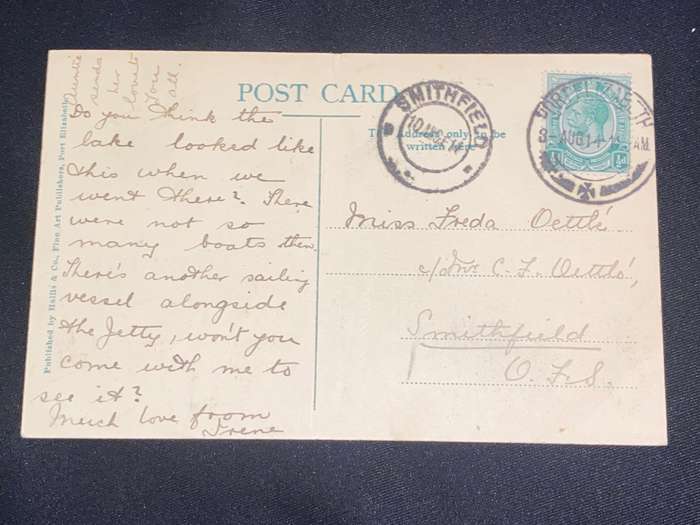 Auntie
sends
her
love to
you
all.
POST CARD
Do you think the
lake looked like
this when we
went there? There
were not so
many boats then.
There's another sailing
vessel alongside
the Jetty, won't you
come with me to
see it?
Much love from
Irene
Published by Hallis & Co., Fine Art Publishers, Port Elizabeth.
The Address only to be
written here
SMITHFIELD
10 AUG
PORT ELIZABETH
8 - AUG 14 - AM
½d
Miss Freda Oettlé
c/o C. F. Oettlé,
Smithfield
O.F.S.